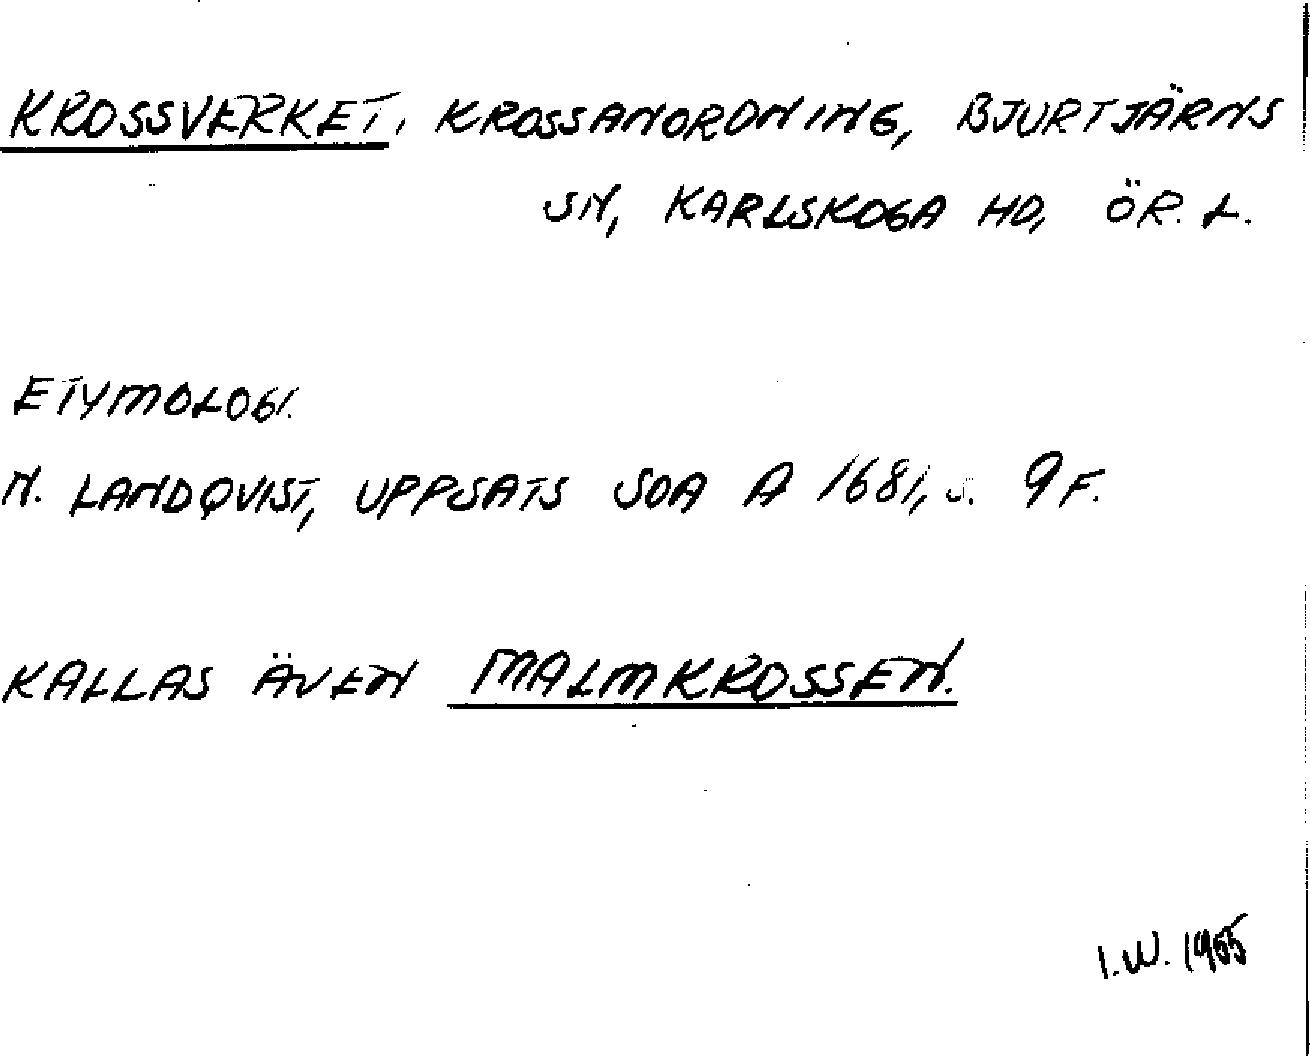 KROSSVERKET, KROSSANORDNING, BJURTJÄRNS
SN, KARLSKOGA HD, ÖR. L.
ETYMOLOGI.
N. LANDQVIST, UPPSATS SOA A 1681, S. 9 F.
KALLAS ÄVEN MALMKROSSEN.
I.W. 1965